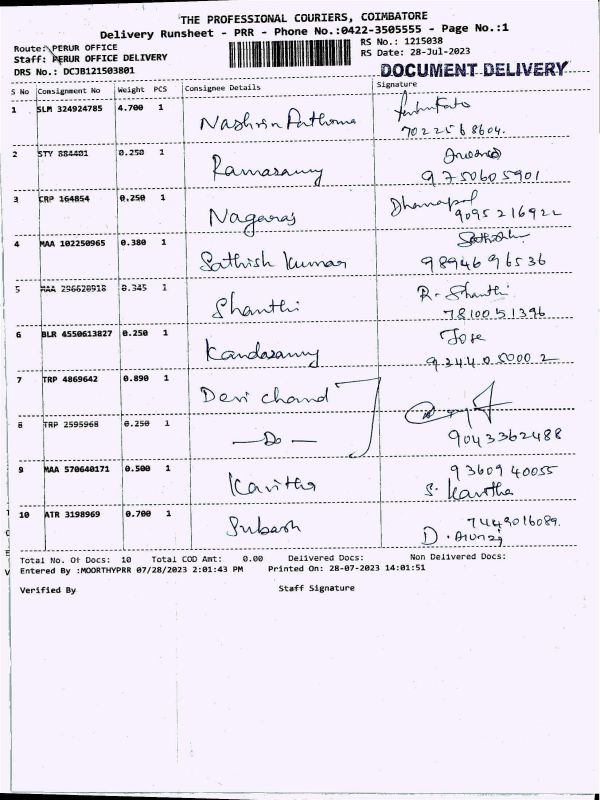 THE PROFESSIONAL COURIERS, COIMBATORE
Delivery Runsheet - PRR - Phone No.:0422-3505555 - Page No.:1
Route: PERUR OFFICE
RS No.: 1215038
Staff: PERUR OFFICE DELIVERY
RS Date: 28-Jul-2023
DRS No.: DCJB121503801
DOCUMENT DELIVERY
S No Consignment No Weight PCS Consignee Details Signature
1 SLM 324924785 4.700 1 Nashrin Pathoma
7022568604.
2 STY 884401 0.250 1 Ramasamy
9750605901
3 CRP 164854 0.250 1 Nagaraj Dhanapal
9095216922
4 MAA 102250965 0.380 1 Sathish Kumar
9894696536
5 MAA 296620918 0.345 1 Shanthi R. Shanthi
7810051396
6 BLR 4550613827 0.250 1 Kandasamy Jose
9344050002
7 TRP 4869642 0.890 1 Devi Chand
8 TRP 2595968 0.250 1 — Do — 9043362488
9 MAA 570640171 0.500 1 Kavitha 9360940055
S. Kavitha
10 ATR 3198969 0.700 1 Subash 7449016089.
Total No. Of Docs: 10 Total COD Amt: 0.00 Delivered Docs: Non Delivered Docs:
Entered By :MOORTHYPRR 07/28/2023 2:01:43 PM Printed On: 28-07-2023 14:01:51
Verified By Staff Signature